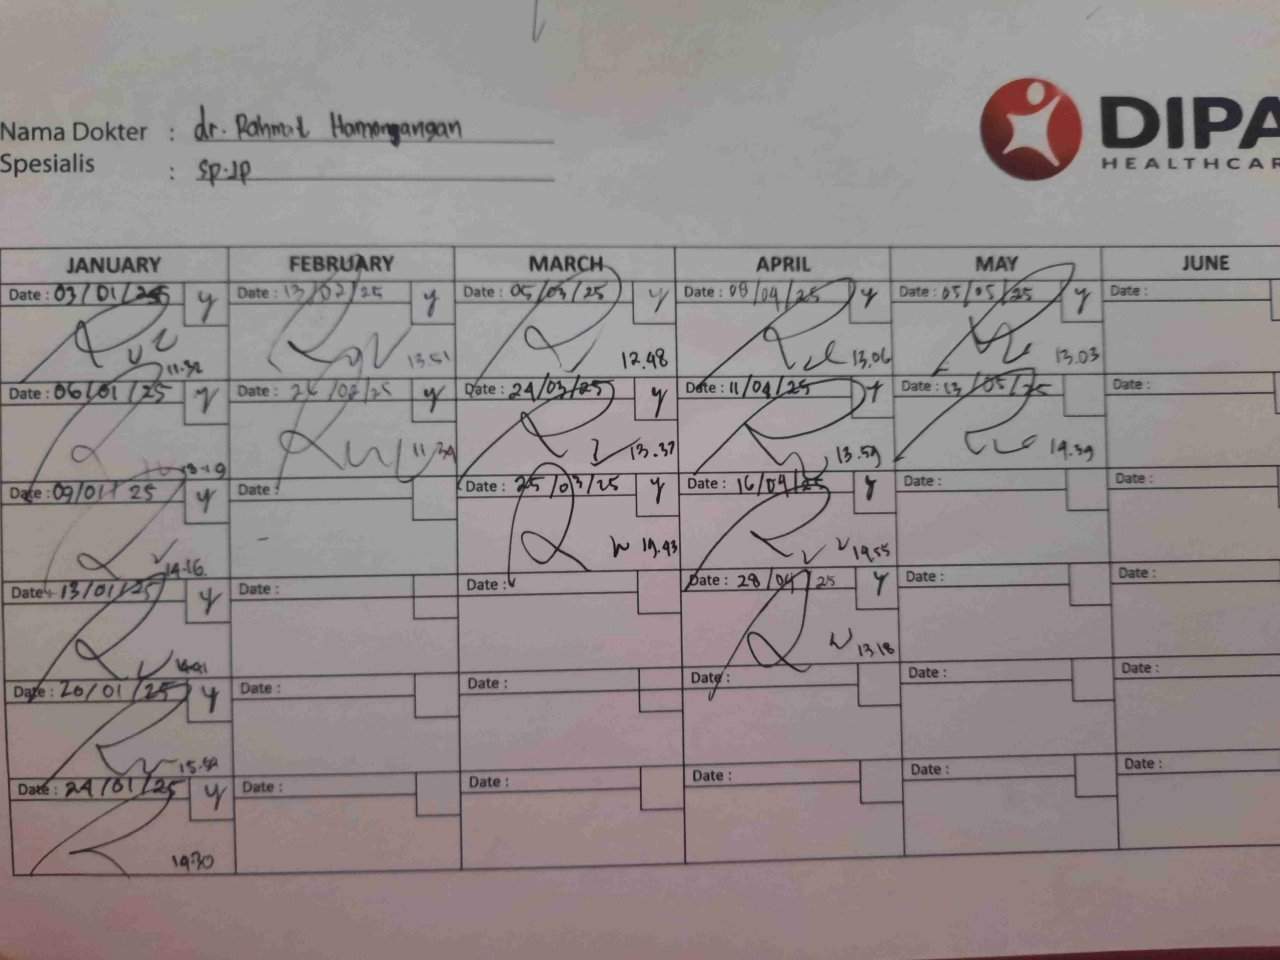 Nama Dokter : dr. Rahmat Hamonangan
Spesialis : Sp.JP
DIPA
HEALTHCAR
JANUARY FEBRUARY MARCH APRIL MAY JUNE
Date : 03/01/25 y Date : 13/02/25 y Date : 05/03/25 y Date : 08/04/25 y Date : 05/05/25 y Date :
11.32 13.51 12.48 13.06 13.03
Date : 06/01/25 y Date : 26/02/25 y Date : 24/03/25 y Date : 11/04/25 y Date : 13/05/25 Date :
13.19 11.39 13.37 13.59 14.39
Date : 09/01/25 y Date : Date : 25/03/25 y Date : 16/04/25 y Date : Date :
14.16 19.43 14.55
Date : 13/01/25 y Date : Date : Date : 28/04/25 y Date : Date :
14.41 13.18
Date : 20/01/25 y Date : Date : Date : Date : Date :
15.52
Date : 24/01/25 y Date : Date : Date : Date : Date :
14.30